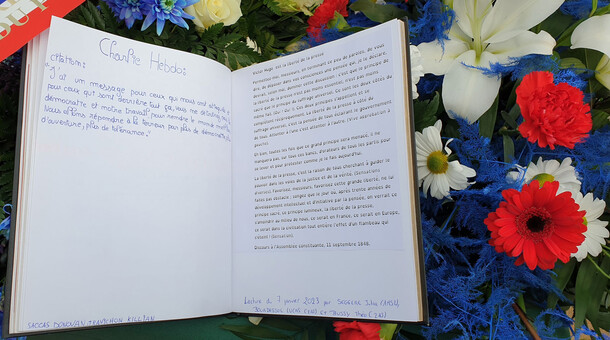 Charlie Hebdo:
citations:
"J'ai un message pour ceux qui nous ont attaqués
pour ceux qui sont derrière tout ça, nous ne
démocratie et notre
Nous allons répondre à la terreur par plus de démocratie,
d'ouverture, plus de tolérance."
Victor Hugo, sur la liberté de la presse
Permettez-moi, messieurs, en terminant ce peu de paroles, de vous
dire, de déposer dans vos consciences une pensée qui, je le déclare,
devrait, selon moi, dominer cette discussion : c'est que le principe de
la liberté de la presse n'est pas moins essentiel, n'est pas moins
sacré que le principe du suffrage universel. Ce sont les deux côtés du
même fait. (Oui ! oui !) Ces deux principes s'appellent et se
complètent réciproquement. La liberté de la presse à côté du
suffrage universel, c'est la pensée de tous éclairant le gouvernement
de tous. Attenter à l'une c'est attenter à l'autre. (Vive approbation à
gauche)
Eh bien, toutes les fois que ce grand principe sera menacé, il ne
manquera pas, sur tous ces bancs, d'orateurs de tous les partis pour
se lever et pour protester comme je le fais aujourd'hui.
La liberté de la presse, c'est la raison de tous cherchant à guider le
pouvoir dans les voies de la justice et de la vérité. (Sensations
diverses). Favorisez, messieurs, favorisez cette grande liberté, ne lui
faites pas obstacle ; songez que le jour où, après trente années de
développement intellectuel et d'initiative par la pensée, on verrait ce
principe sacré, ce principe lumineux, la liberté de la presse,
s'amoindrir au milieu de nous, ce serait en France, ce serait en Europe,
ce serait dans la civilisation tout entière l'effet d'un flambeau qui
s'éteint ! (Sensation).
Discours à l'Assemblée constituante, 11 septembre 1848.
Lecture du 7 janvier 2023 par